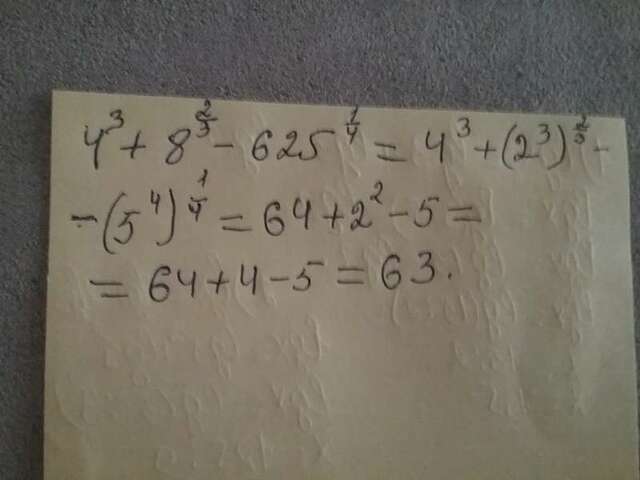 4^3 + 8^{2/3} - 625^{1/4} = 4^3 + (2^3)^{2/3} -
- (5^4)^{1/4} = 64 + 2^2 - 5 =
= 64 + 4 - 5 = 63.